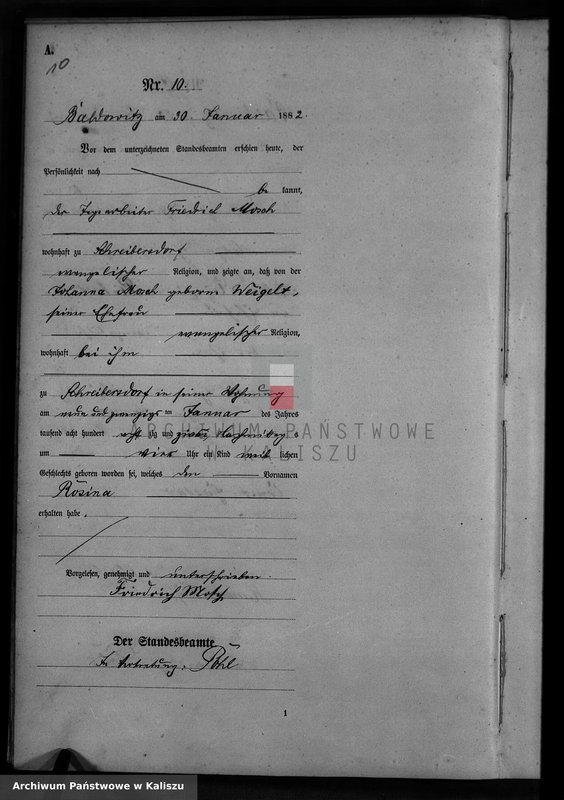 A.
10
Nr. 10.
Baldowitz am 30 Januar 1882.
Vor dem unterzeichneten Standesbeamten erschien heute, der
Persönlichkeit nach
be kannt,
der Tagearbeiter Friedrich Mosch
wohnhaft zu Schreibersdorf
evangelischer Religion, und zeigte an, daß von der
Johanna Mosch geborne Weigelt,
seiner Ehefrau
evangelischer Religion,
wohnhaft bei ihm
zu Schreibersdorf in seiner Wohnung
am neun und zwanzigs ten Januar des Jahres
tausend acht hundert acht zig und zwei Nachmittags
um vier Uhr ein Kind weib lichen
Geschlechts geboren worden sei, welches den Vornamen
Rosina
erhalten habe.
Vorgelesen, genehmigt und unterschrieben.
Friedrich Mosch
Der Standesbeamte
In Vertretung. Pohl
1
ARCHIWUM PAŃSTWOWE
W KALISZU
Archiwum Państwowe w Kaliszu